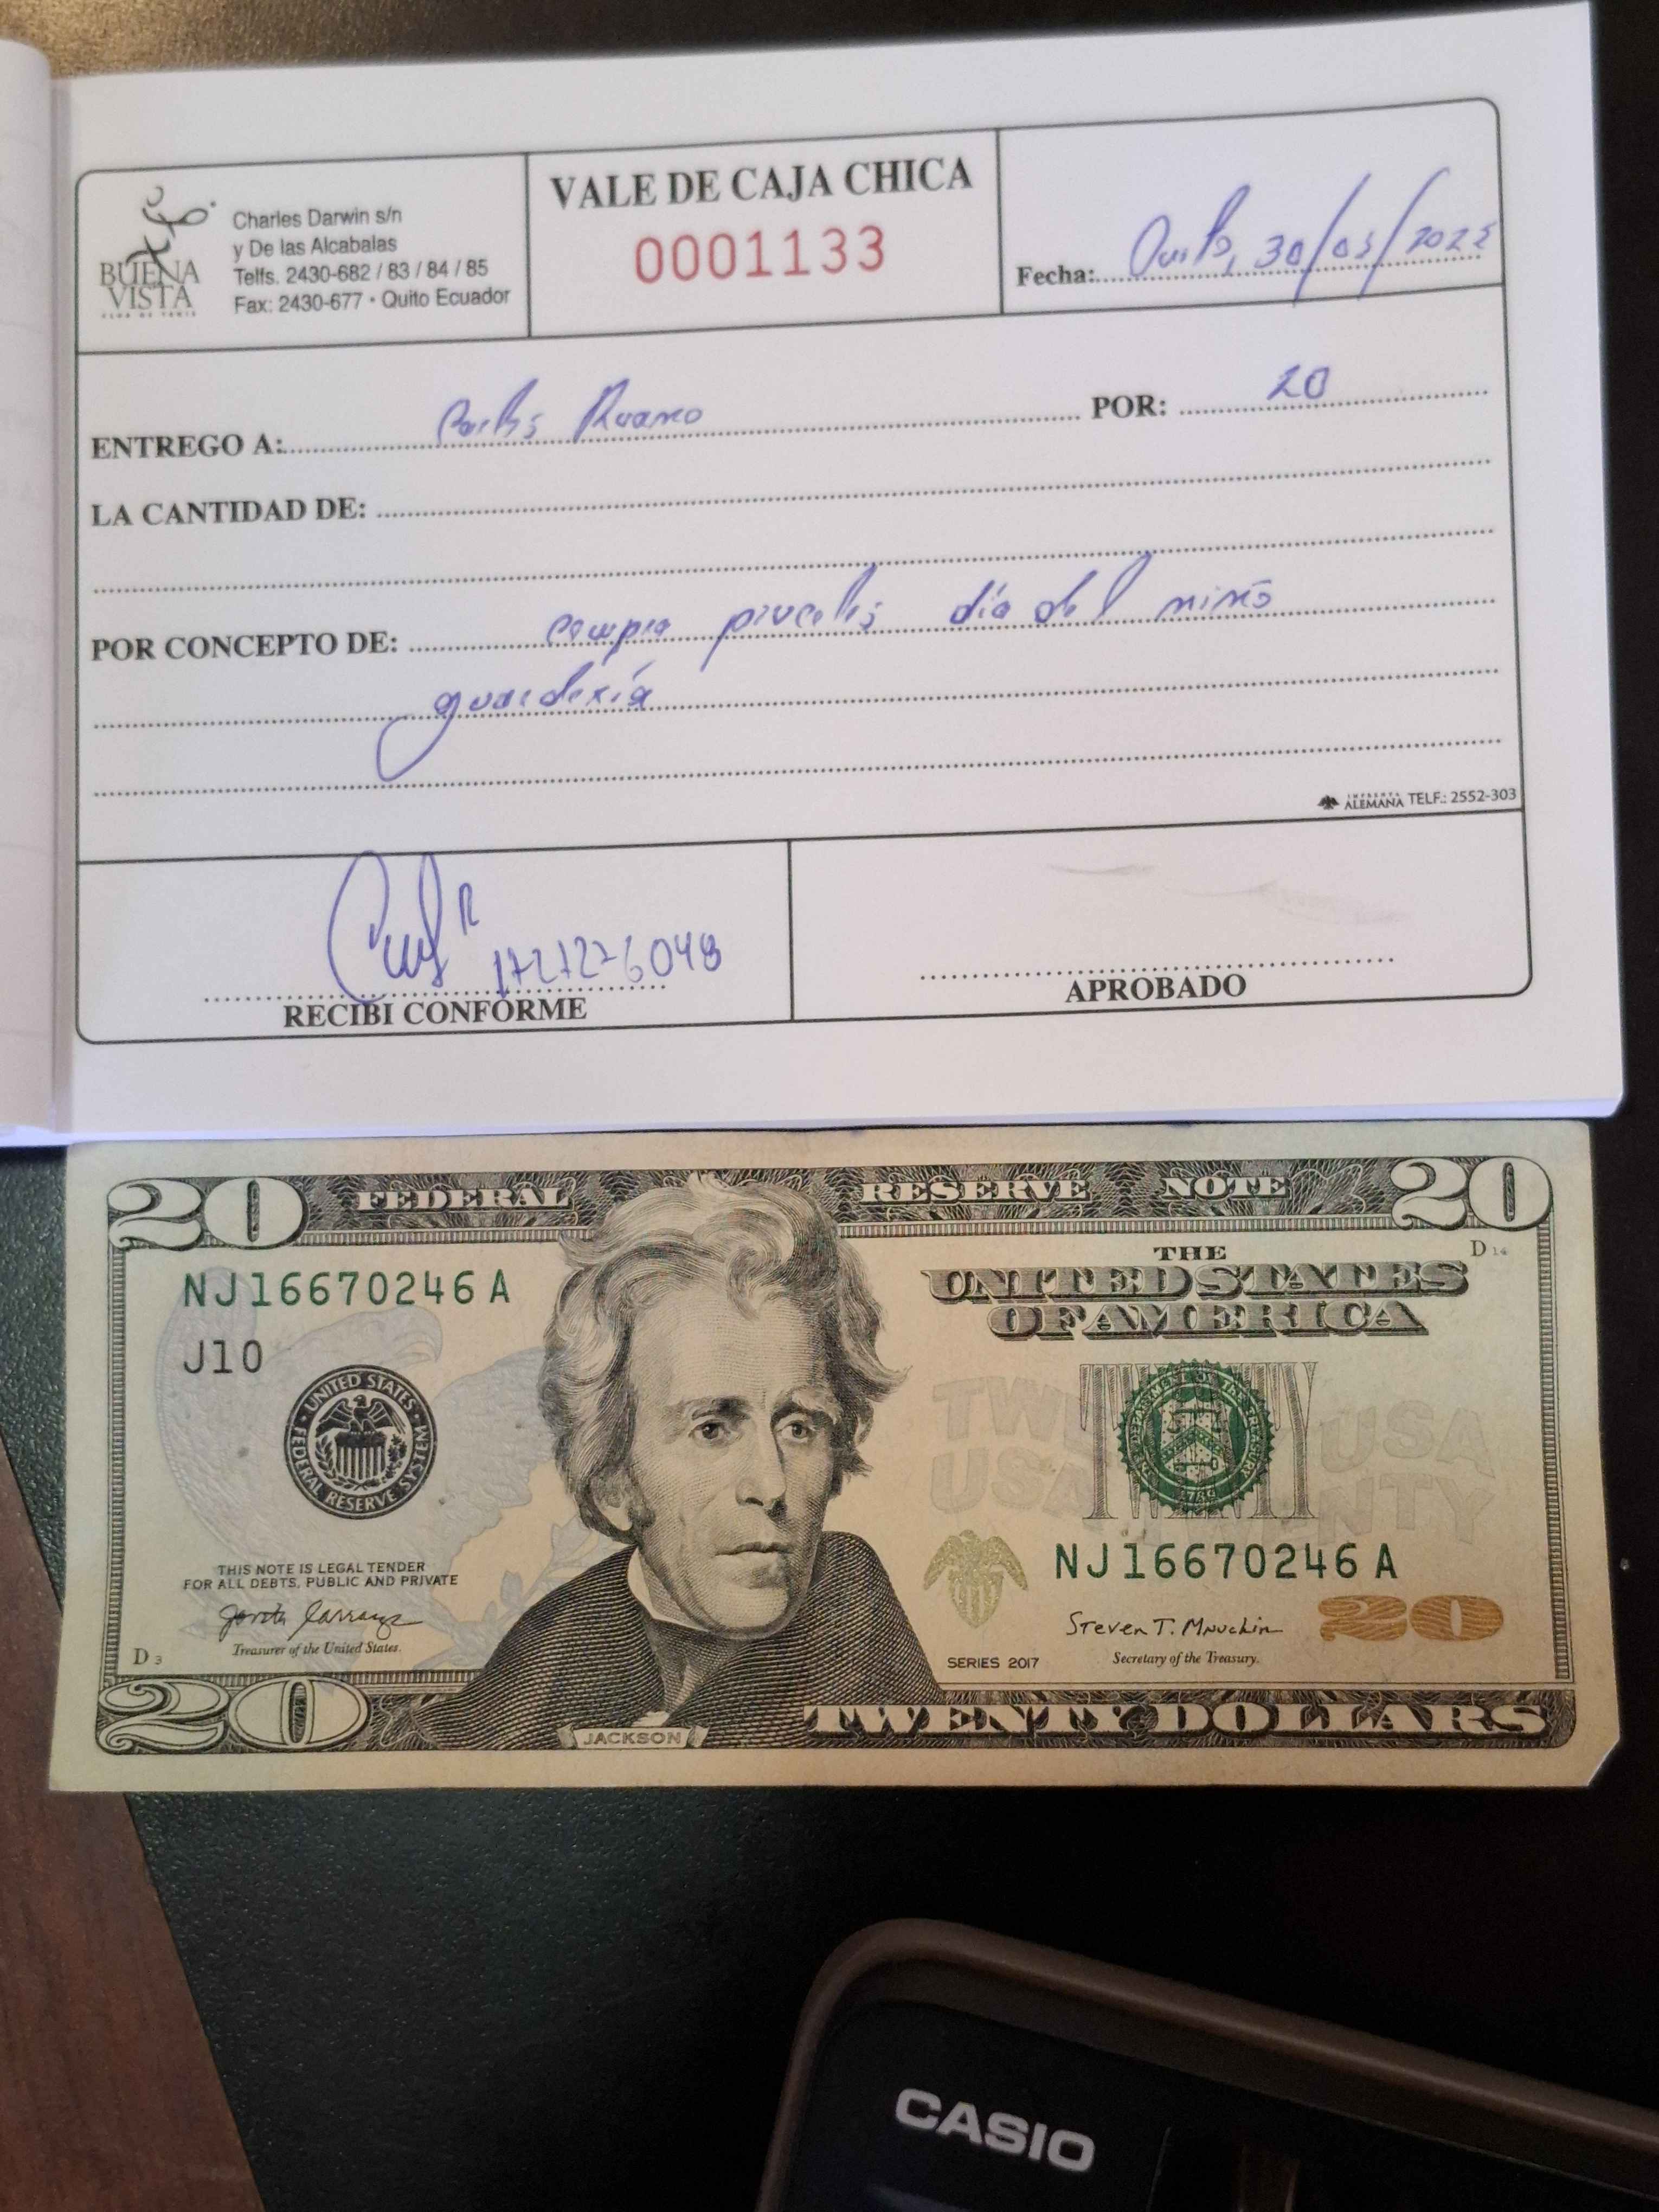 BUENA
VISTA
CLUB DE TENIS
Charles Darwin s/n
y De las Alcabalas
Telfs. 2430-682 / 83 / 84 / 85
Fax: 2430-677 • Quito Ecuador
VALE DE CAJA CHICA
0001133
Fecha: Quito, 30/05/2025
ENTREGO A: Carlos Ruano POR: 20
LA CANTIDAD DE:
POR CONCEPTO DE: compra pinceles día del niño
guardería
IMPRENTA
ALEMANA TELF.: 2552-303
R
RECIBI CONFORME
APROBADO
20 FEDERAL RESERVE NOTE 20
THE
UNITED STATES
OF AMERICA
D 14
NJ16670246A
J10
UNITED STATES FEDERAL RESERVE SYSTEM
TWE
USA
USA
NTY
THE DEPARTMENT OF THE TREASURY
1789
THIS NOTE IS LEGAL TENDER
FOR ALL DEBTS, PUBLIC AND PRIVATE
NJ16670246A
Steven T. Mnuchin
20
Treasurer of the United States.
D 3
SERIES 2017
Secretary of the Treasury.
20
JACKSON
TWENTY DOLLARS
CASIO